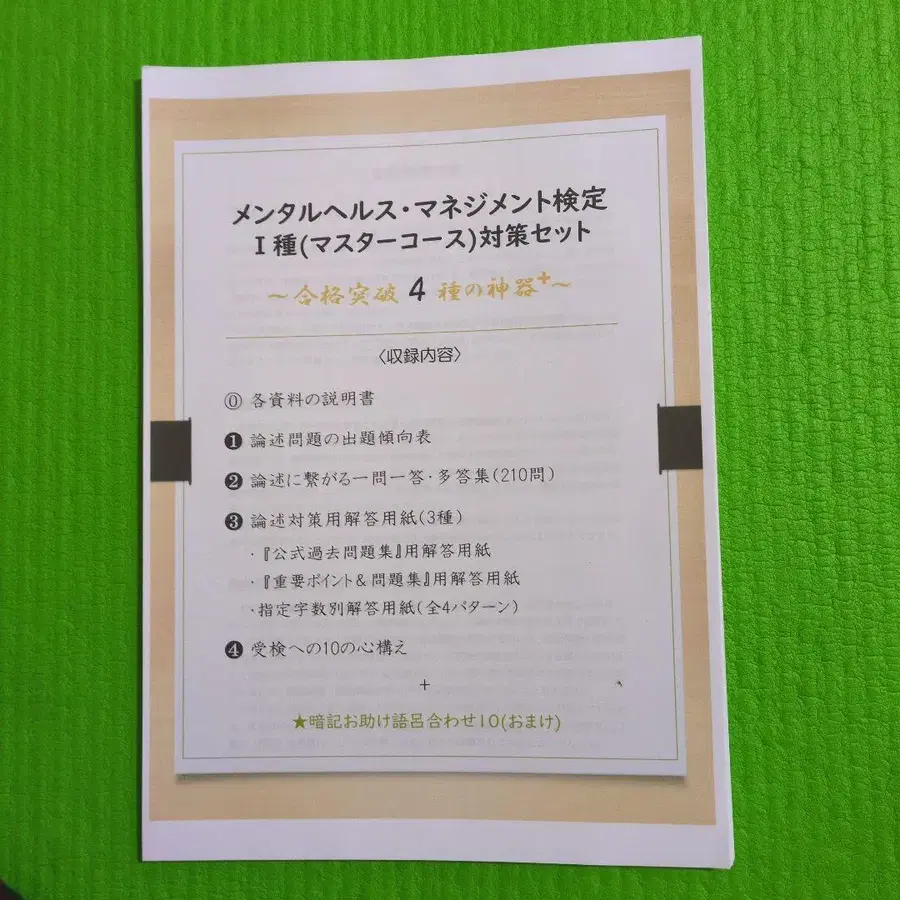 メンタルヘルス・マネジメント検定
Ⅰ種(マスターコース)対策セット
～合格突破 4 種の神器⁺～
〈収録内容〉
⓪ 各資料の説明書
❶ 論述問題の出題傾向表
❷ 論述に繋がる一問一答・多答集(210問)
❸ 論述対策用解答用紙(3種)
・『公式過去問題集』用解答用紙
・『重要ポイント&問題集』用解答用紙
・指定字数別解答用紙(全4パターン)
❹ 受検への10の心構え
+
★暗記お助け語呂合わせ10(おまけ)